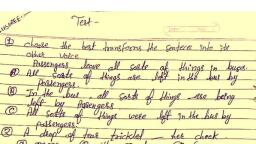 Test -
① choose the best transforms the sentence into its
other voice
Passengers leave all sorts of things in buses.
Ⓐ All sorts of things are left in the bus by
Passengers.
Ⓑ In the bus all sorts of things are being
left by Passengers
Ⓒ All sorts of things were left in the bus by
Passengers.
② A drop of tear trickled __ her cheek